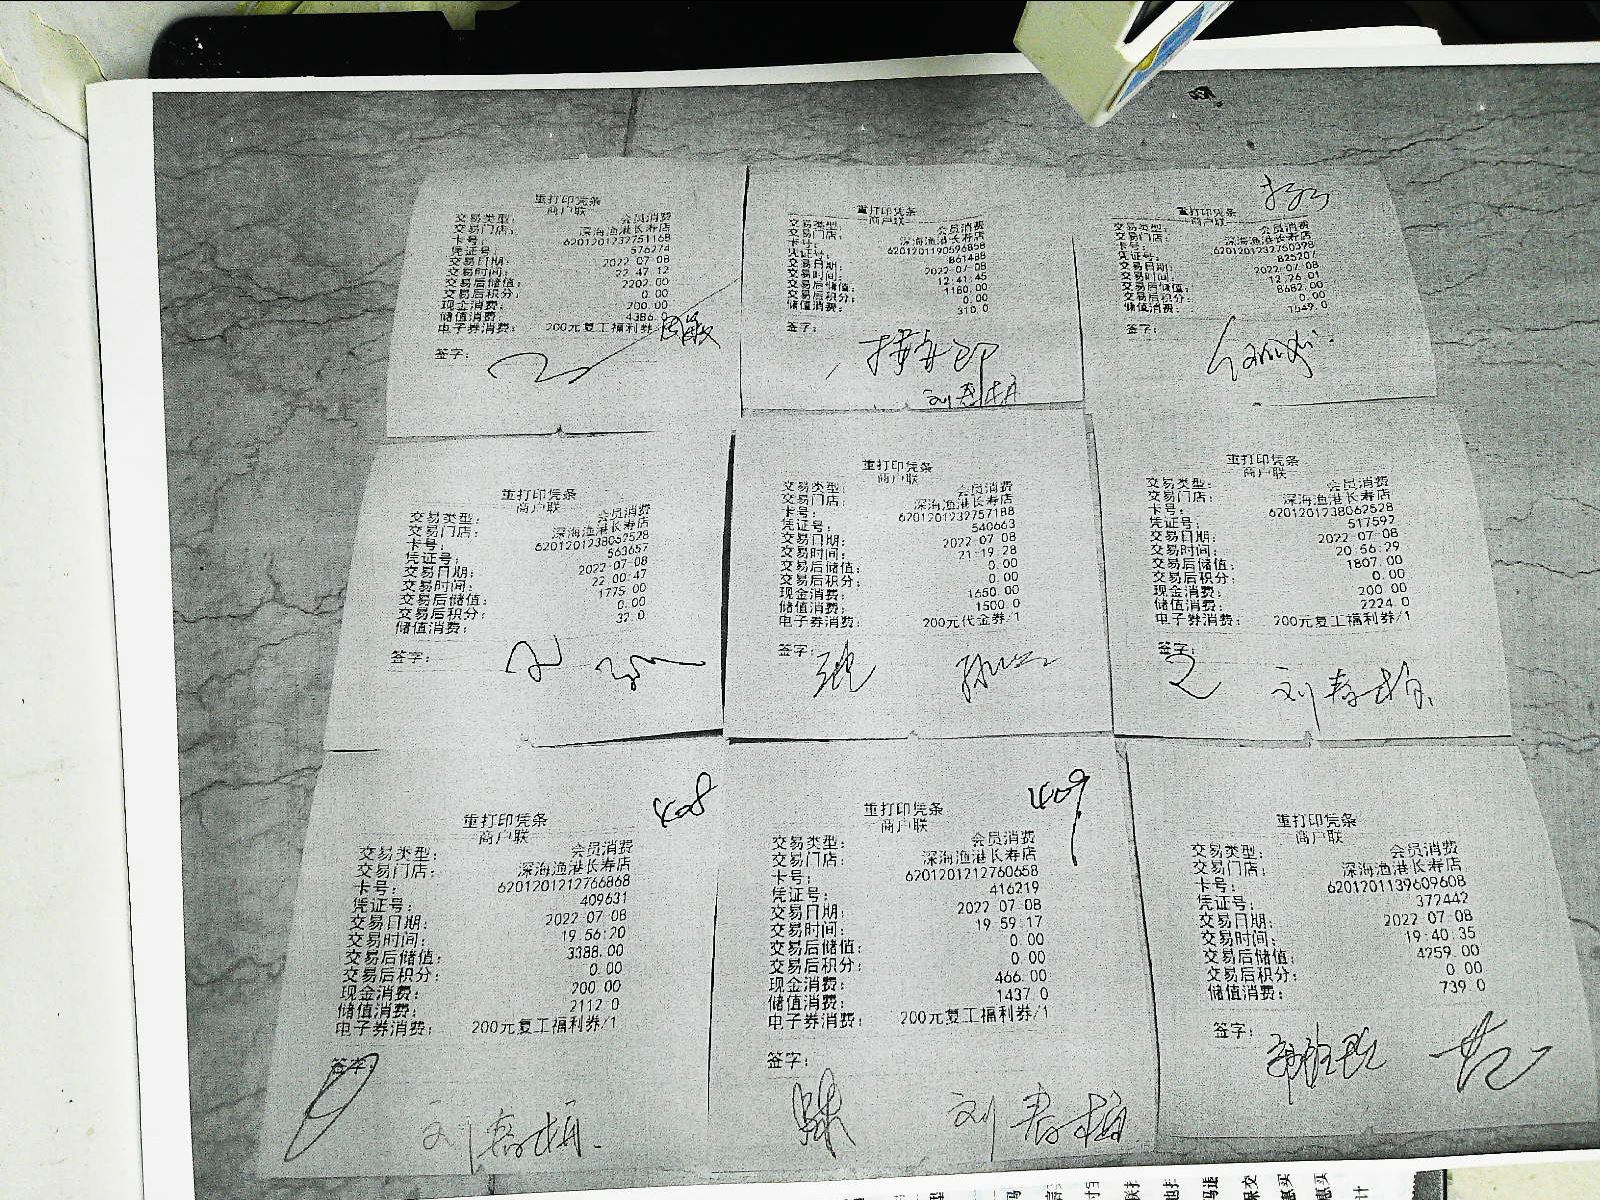 重打印凭条
商户联
交易类型: 会员消费
交易门店: 深海渔港长寿店
卡号: 6201201232751168
凭证号: 576274
交易日期: 2022-07-08
交易时间: 22:47:12
交易后储值: 2202.00
交易后积分: 0.00
现金消费: 200.00
储值消费: 4386.0
电子券消费: 200元复工福利券
签字:
重打印凭条
商户联
交易类型: 会员消费
交易门店: 深海渔港长寿店
卡号: 6201201190596868
凭证号: 861488
交易日期: 2022-07-08
交易时间: 12:41:45
交易后储值: 1180.00
交易后积分: 0.00
储值消费: 310.0
签字:
重打印凭条
商户联
交易类型: 会员消费
交易门店: 深海渔港长寿店
卡号: 6201201232760398
凭证号: 825207
交易日期: 2022-07-08
交易时间: 12:26:01
交易后储值: 8682.00
交易后积分: 0.00
储值消费: 1549.0
签字:
重打印凭条
商户联
交易类型: 会员消费
交易门店: 深海渔港长寿店
卡号: 6201201238062528
凭证号: 563657
交易日期: 2022-07-08
交易时间: 22:00:47
交易后储值: 1775.00
交易后积分: 0.00
储值消费: 32.0
签字:
重打印凭条
商户联
交易类型: 会员消费
交易门店: 深海渔港长寿店
卡号: 6201201232757188
凭证号: 540663
交易日期: 2022-07-08
交易时间: 21:19:28
交易后储值: 0.00
交易后积分: 0.00
现金消费: 1650.00
储值消费: 1500.0
电子券消费: 200元代金券/1
签字:
重打印凭条
商户联
交易类型: 会员消费
交易门店: 深海渔港长寿店
卡号: 6201201238062528
凭证号: 517592
交易日期: 2022-07-08
交易时间: 20:56:29
交易后储值: 1807.00
交易后积分: 0.00
现金消费: 200.00
储值消费: 2224.0
电子券消费: 200元复工福利券/1
签字:
刘春梅
408
重打印凭条
商户联
交易类型: 会员消费
交易门店: 深海渔港长寿店
卡号: 6201201212766868
凭证号: 409631
交易日期: 2022-07-08
交易时间: 19:56:20
交易后储值: 3388.00
交易后积分: 0.00
现金消费: 200.00
储值消费: 2112.0
电子券消费: 200元复工福利券/1
签字:
刘春梅
409
重打印凭条
商户联
交易类型: 会员消费
交易门店: 深海渔港长寿店
卡号: 6201201212760658
凭证号: 416219
交易日期: 2022-07-08
交易时间: 19:59:17
交易后储值: 0.00
交易后积分: 0.00
现金消费: 466.00
储值消费: 1437.0
电子券消费: 200元复工福利券/1
签字:
刘春梅
重打印凭条
商户联
交易类型: 会员消费
交易门店: 深海渔港长寿店
卡号: 6201201139609608
凭证号: 372442
交易日期: 2022-07-08
交易时间: 19:40:35
交易后储值: 4259.00
交易后积分: 0.00
储值消费: 739.0
签字: